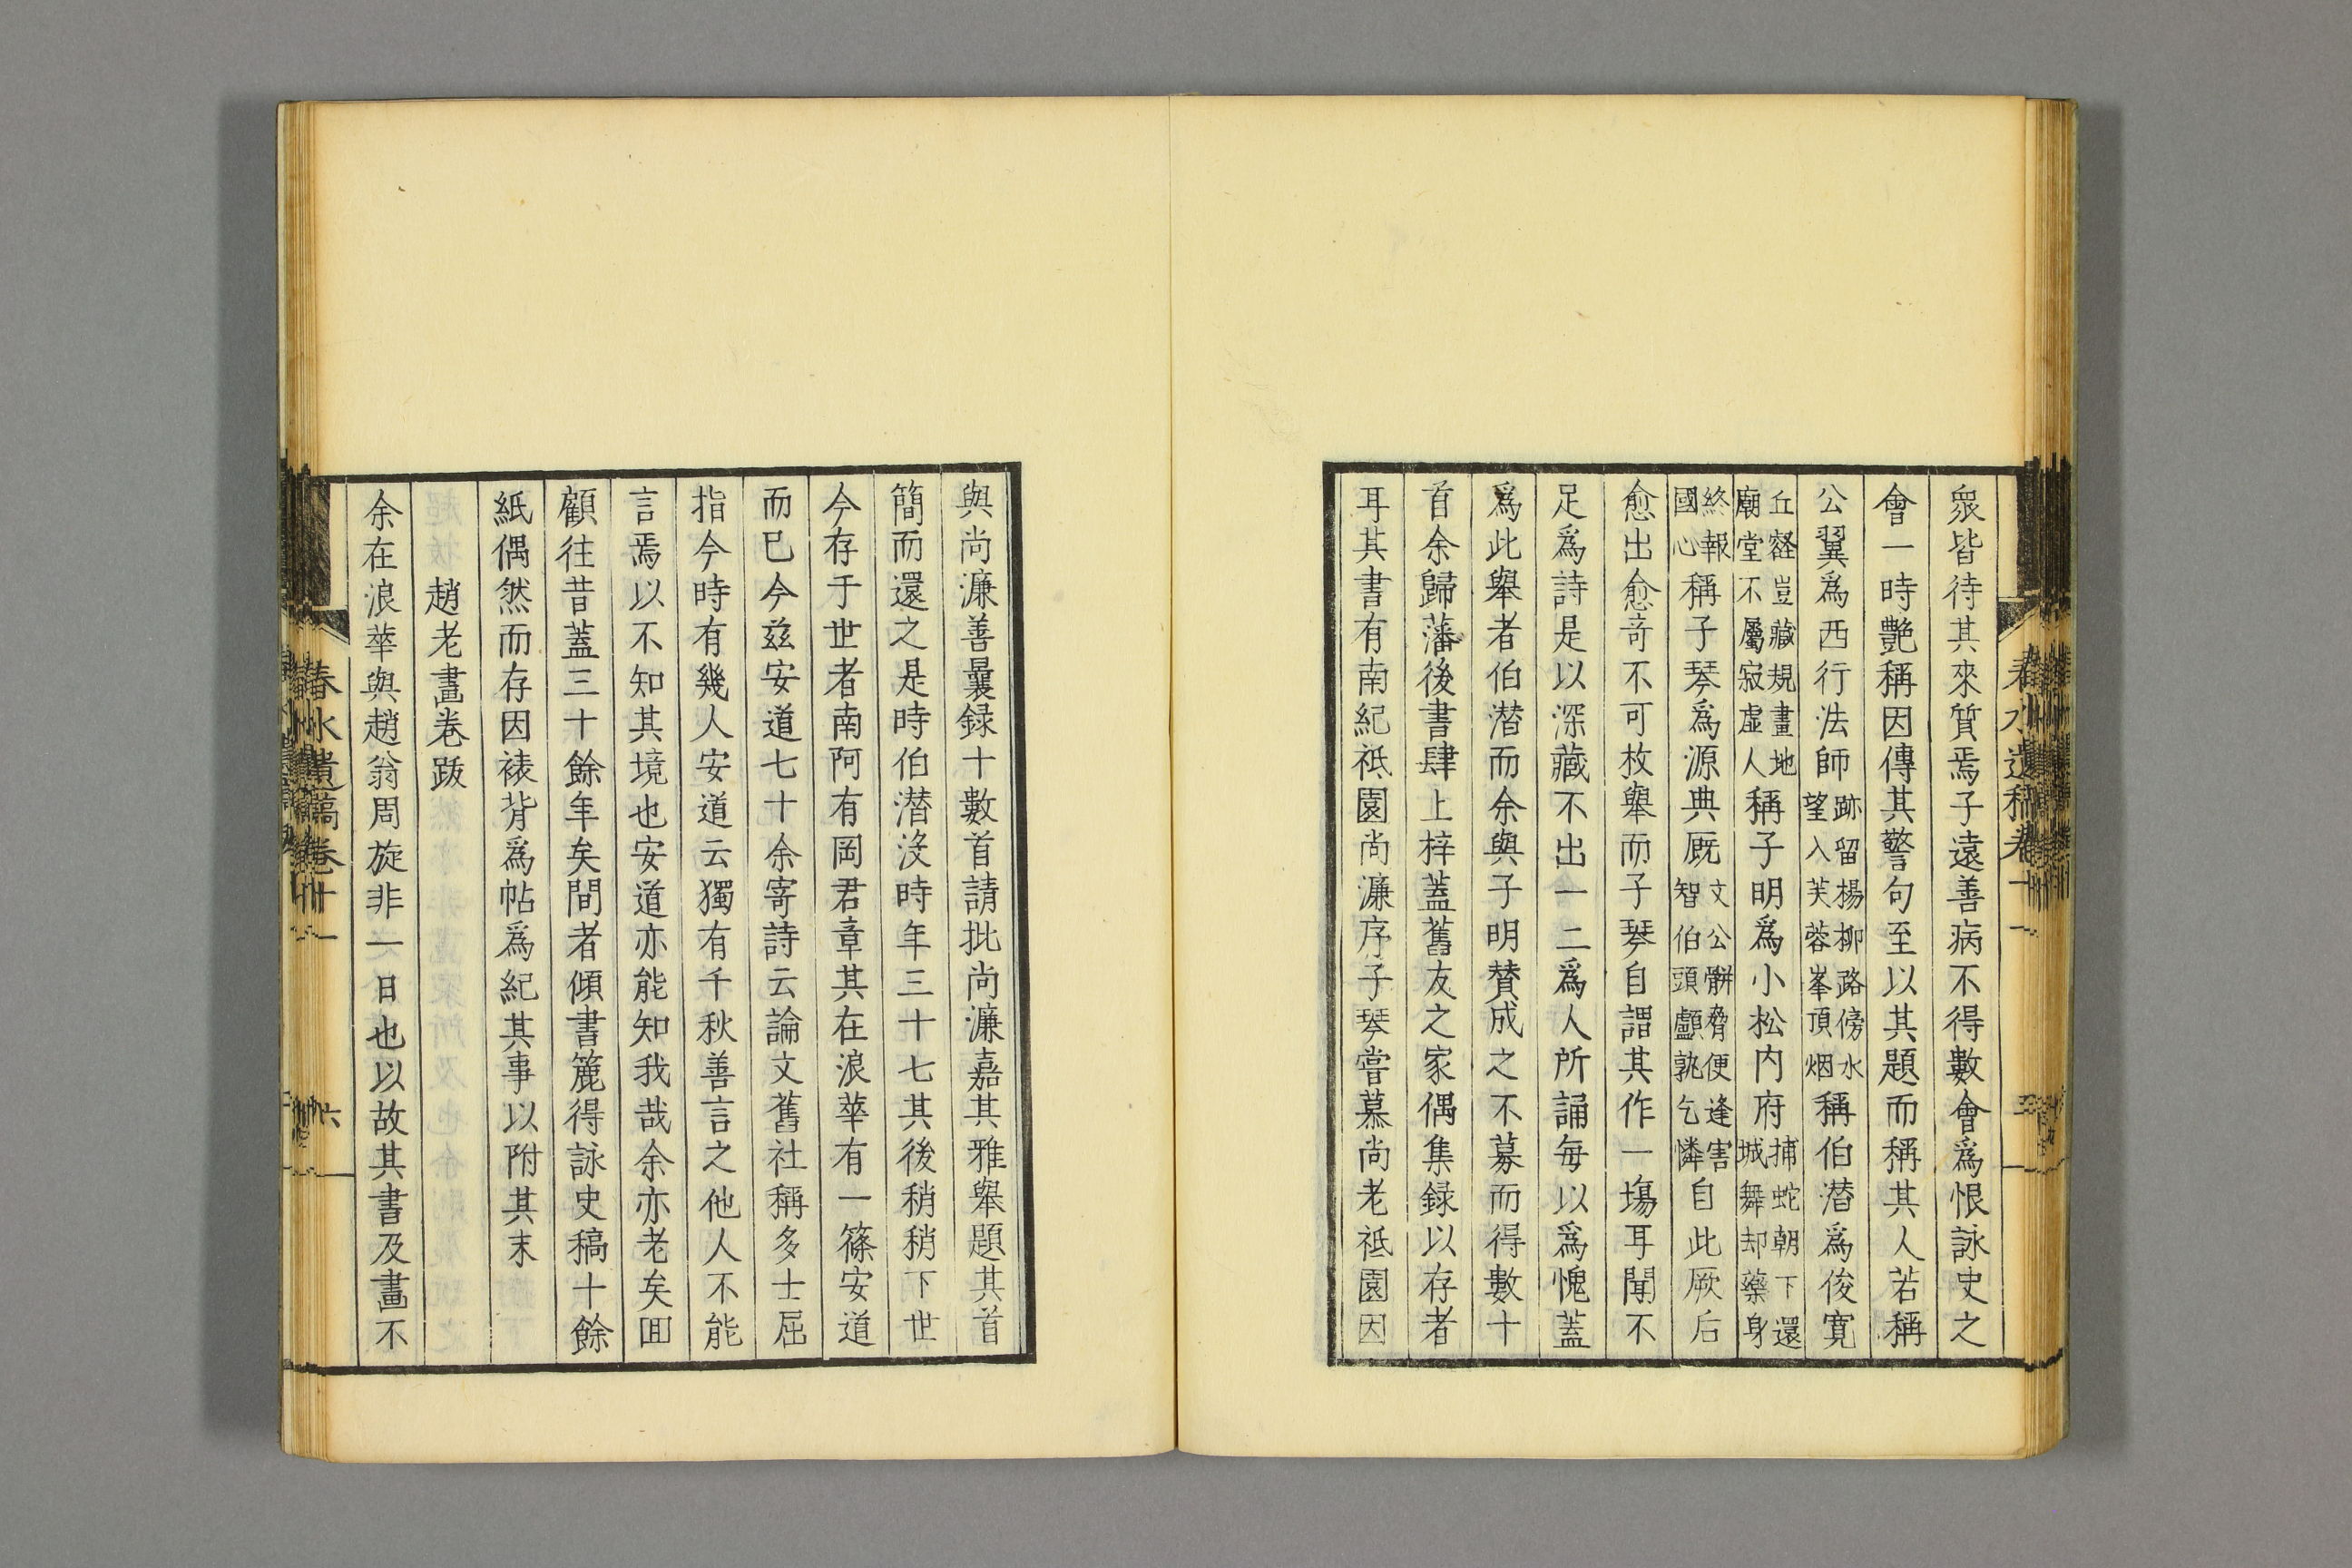 衆皆待其來質焉子遠善病不得數會爲恨詠史之
會一時艶稱因傳其警句至以其題而稱其人若稱
公翼爲西行法師跡留楊柳路傍水望入芙蓉峯頂烟稱伯潜爲俊寛
丘壑豈藏規畫地廟堂不屬寂虚人稱子明爲小松内府捕蛇朝下還城舞却藥身
終報國心稱子琴爲源典厩文公骿脅便逢害智伯頭顱孰乞憐自此厥后
愈出愈奇不可枚舉而子琴自謂其作一塲耳聞不
足爲詩是以深藏不出一二爲人所誦毎以爲愧蓋
爲此舉者伯潜而余與子明賛成之不募而得數十
首余歸藩後書肆上梓蓋舊友之家偶集録以存者
耳其書有南紀祗園尚濂序子琴嘗慕尚老祗園因
與尚濂善曩録十數首請批尚濂嘉其雅舉題其首
簡而還之是時伯潜没時年三十七其後稍稍下世
今存于世者南阿有岡君章其在浪華有一篠安道
而已今玆安道七十余寄詩云論文舊社稱多士屈
指今時有幾人安道云獨有千秋善言之他人不能
言焉以不知其境也安道亦能知我哉余亦老矣囬
顧往昔蓋三十餘年矣間者傾書簏得詠史稿十餘
紙偶然而存因裱背爲帖爲紀其事以附其末
趙老畫卷跋
余在浪華與趙翁周旋非一日也以故其書及畫不
春水遺稿卷十一
六